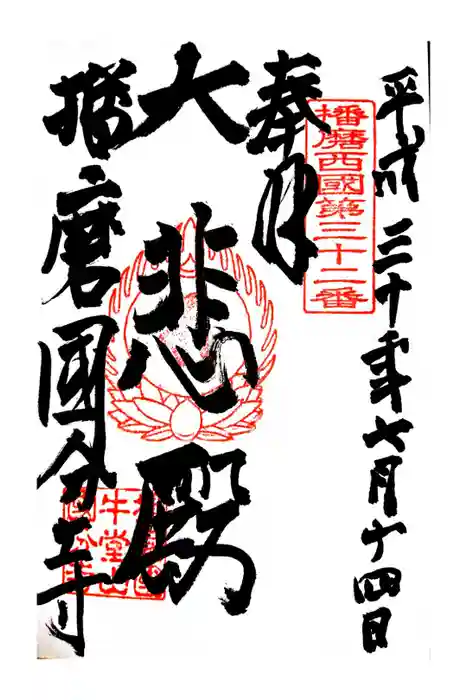 平成三十年七月十四日
播磨西國第三十二番
奉拝
大悲殿
播磨國分寺
牛堂山